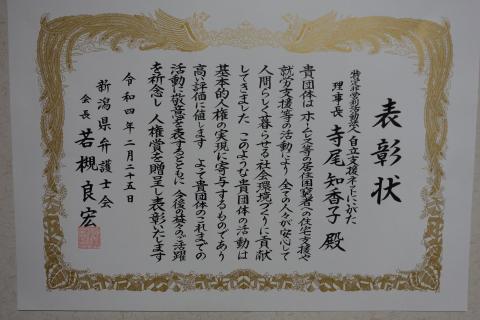 表彰状
特定非営利活動法人 自立支援ネットにいがた
理事長 寺尾 知香子 殿
貴団体は ホームレス等の居住困窮者への住宅支援や
就労支援等の活動により 全ての人々が安心して
人間らしく暮らせる社会環境づくりに貢献
してきました このような貴団体の活動は
基本的人権の実現に寄与するものであり
高い評価に値します よって貴団体のこれまでの
活動に敬意を表するとともに 今後の益々のご活躍
を祈念し 人権賞を贈呈し表彰いたします
令和四年二月二十五日
新潟県弁護士会
会長 若槻 良宏